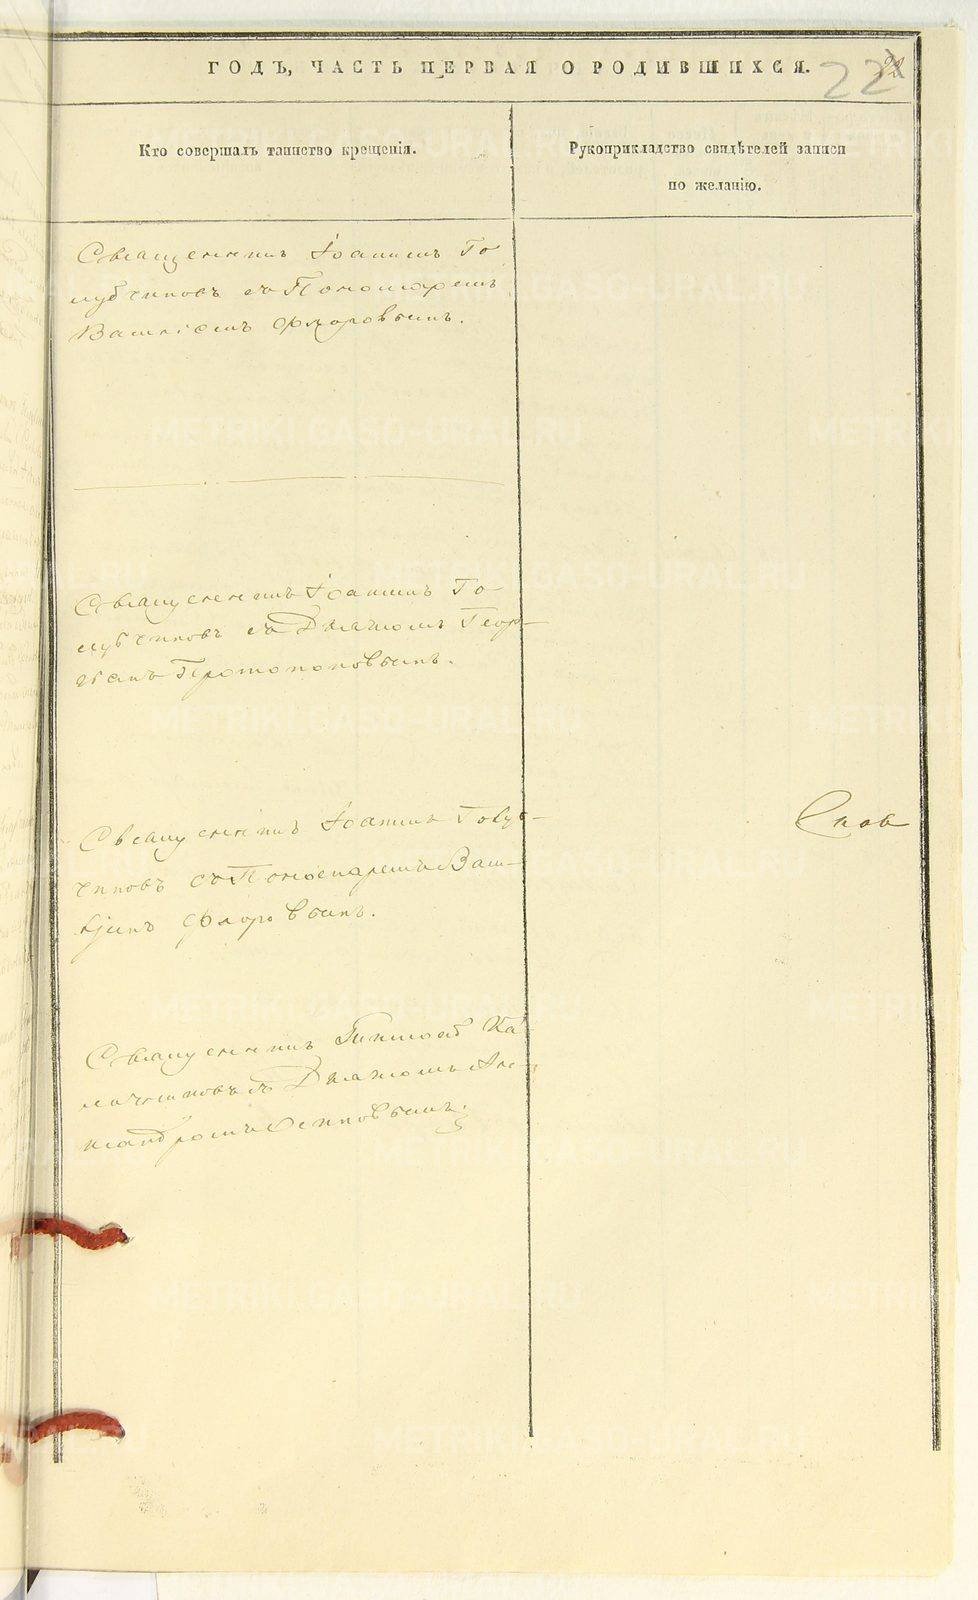 ГОДЪ, ЧАСТЬ ПЕРВАЯ О РОДИВШИХСЯ.
22
Кто совершалъ таинство крещенія.
Рукоприкладство свидѣтелей записи
по желанію.
Священникъ Іоаннъ Го
лубчиковъ съ Пономаремъ
Флоровымъ.
Священникъ Іоаннъ Го-
лубчиковъ съ Діакономъ Геор-
Протопоповымъ.
Священникъ Іоаннъ Голуб-
чиковъ съ Пономаремъ
Флоровымъ.
Священникъ Ка-
съ Діакономъ Алек-
сандромъ Осиповымъ.
METRIKI.GASO-URAL.RU